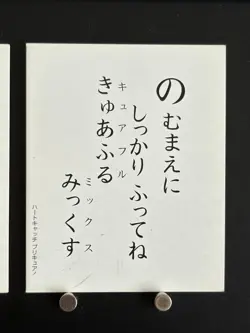 のむまえに
しっかりふってね
きゅあふる
キュアフル
みっくす
ミックス
ハートキャッチプリキュア！